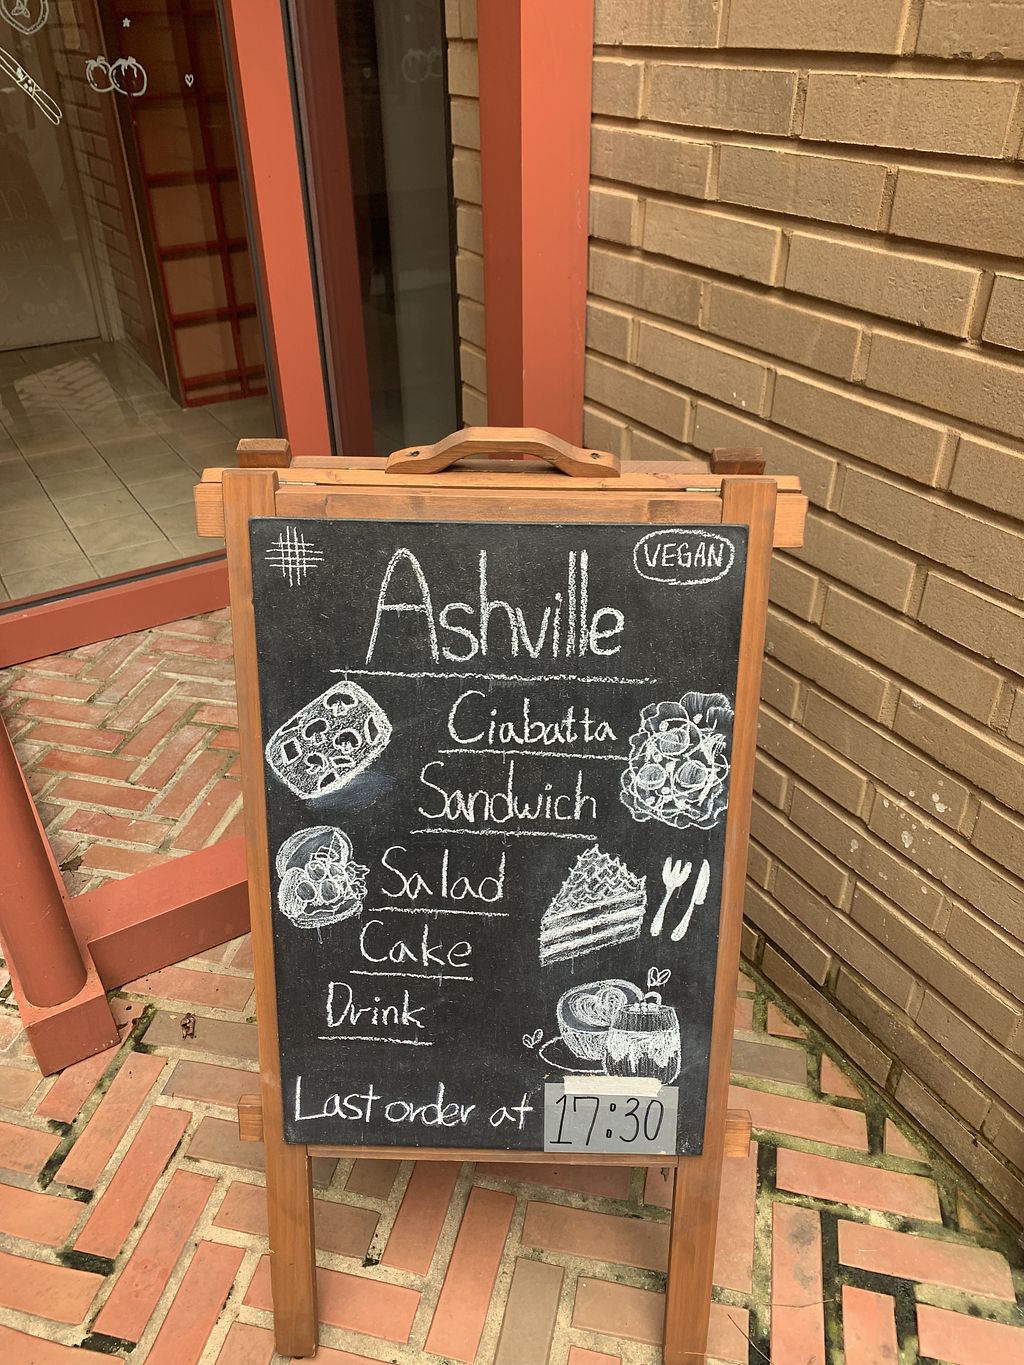 VEGAN
Ashville
Ciabatta
Sandwich
Salad
Cake
Drink
Last order at 17:30